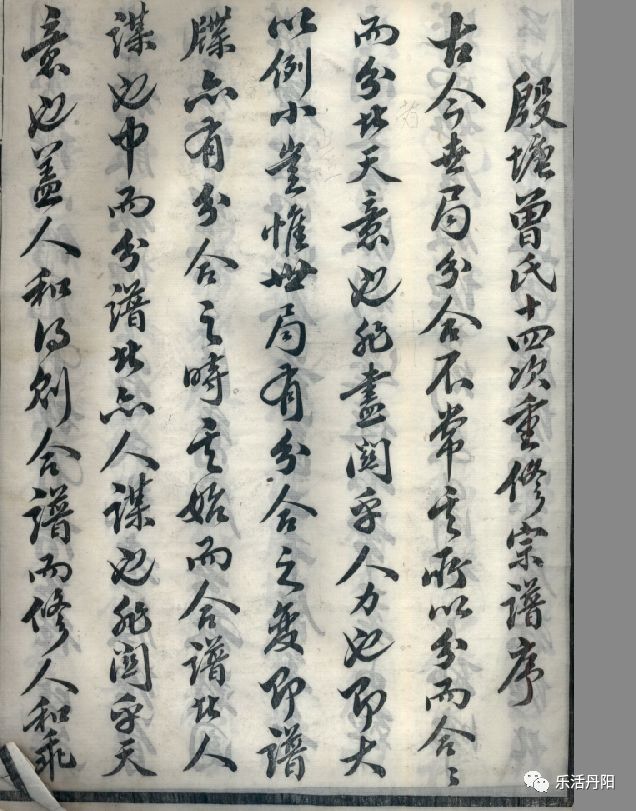 殷塘曾氏十四次重修宗譜序
古今世局分合不常其所以分而合合
而分此天意也非盡関乎人力也即大
以例小豈惟世局有分合之变即譜
牒亦有分合之時其始而合譜此人
謀也中而分譜此亦人謀也非関乎天
意也盖人和乃則合譜而修人和乖
乐活丹阳